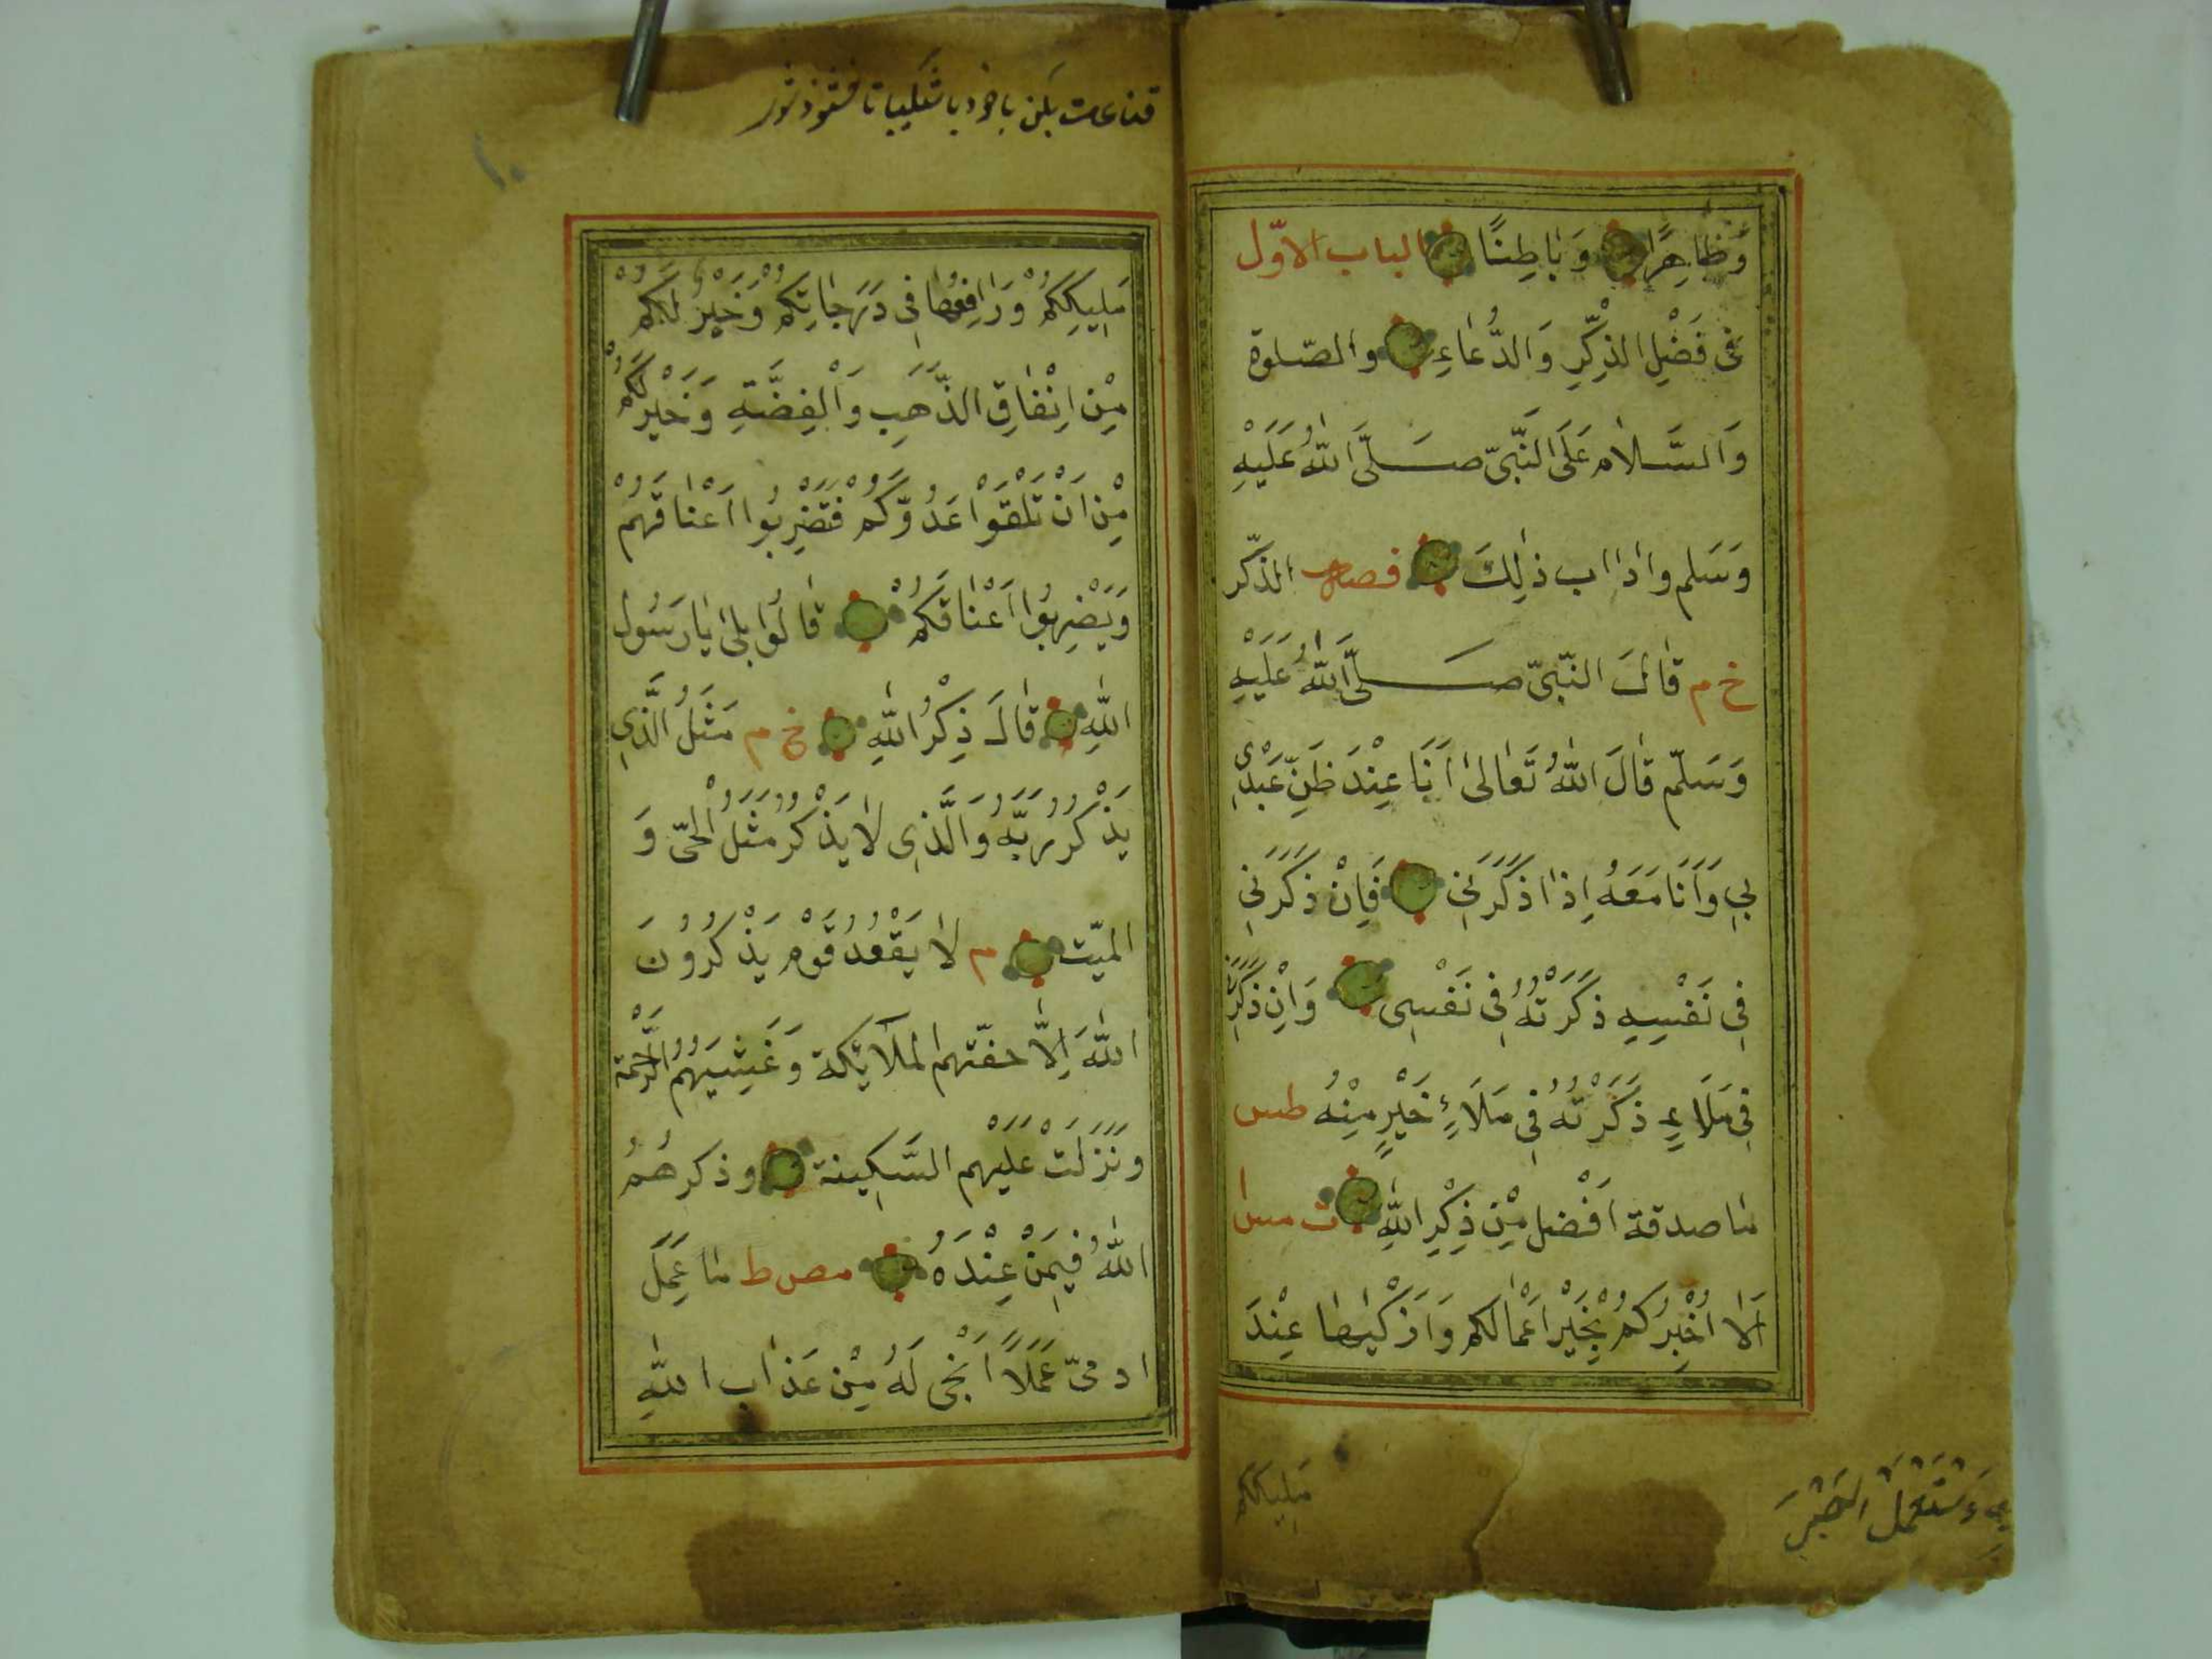 وَظَاهِرًا وَبَاطِنًا الباب الاوّل
فى فَضْلِ الذِّكْرِ وَالدُّعَاءِ والصّلوة
وَالسَّلَام عَلَى النَّبِىّ صَلَّى اللّٰهُ عَلَيْهِ
وَسَلم واداب ذٰلِكَ فصل الذّكر
خ م قَالَ النّبِىّ صَلَّى اللّٰهُ عَلَيْهِ
وَسَلّم قَالَ اللّٰهُ تَعَالىٰ اَنَا عِنْدَ ظَنِّ عَبْدِى
بِى وَاَنَا مَعَهُ اِذَا ذَكَرَنِى فَاِنْ ذَكَرَنِى
فِى نَفْسِهِ ذَكَرْتُهُ فِى نَفْسِى وَاِنْ ذَكَرَنِى
فِى مَلَاءٍ ذَكَرْتُهُ فِى مَلَاءٍ خَيْرٍ مِنْهُ طس
مَا صدقة اَفْضل مِنْ ذِكْرِ اللّٰهِ ت مس
اَلَا اُخْبِرُكُمْ بِخَيْرِ اَعْمَالكم وَاَزْكٰيهَا عِنْدَ
مَلِيكِكُم
وَسْتَعْمَلَ الصَّبْرَ
قناعت بكن با خود يا شكيبا تا
١٠
مَلِيكِكُمْ وَرَافِعُهَا فِى دَرَجَاتِكُمْ وَخَيْرٌ لَكُمْ
مِنْ اِنْفَاقِ الذَّهَبِ وَالْفِضَّةِ وَخَيْر لَكُمْ
مِنْ اَنْ تَلْقَوْا عَدُوَّكُمْ فَتَضْرِبُوا اَعْنَاقَهُمْ
وَيَضْرِبُوا اَعْنَاقَكُمْ قَالُوا بلىٰ يَا رَسُول
اللّٰهِ قَالَ ذِكْرُ اللّٰهِ خ م مَثَلُ الَّذِى
يَذْكُرُ رَبَّهُ وَالَّذِى لَا يَذْكُرُ مَثَلُ الْحَىّ وَ
الميّت م لَا يَقْعُدُ قَوْم يَذْكُرُونَ
اللّٰهَ اِلَّا حفّتهم الملَائِكة وَغَشِيَتْهُمُ الرَّحْمَة
ونَزَلَتْ عَلَيْهِم السَّكِينة وذكرهُمُ
اللّٰهُ فِيمَنْ عِنْدَهُ مص ط مَا عَمِلَ
ادمىّ عَمَلًا اَنْجٰى لَهُ مِنْ عَذَاب اللّٰهِ